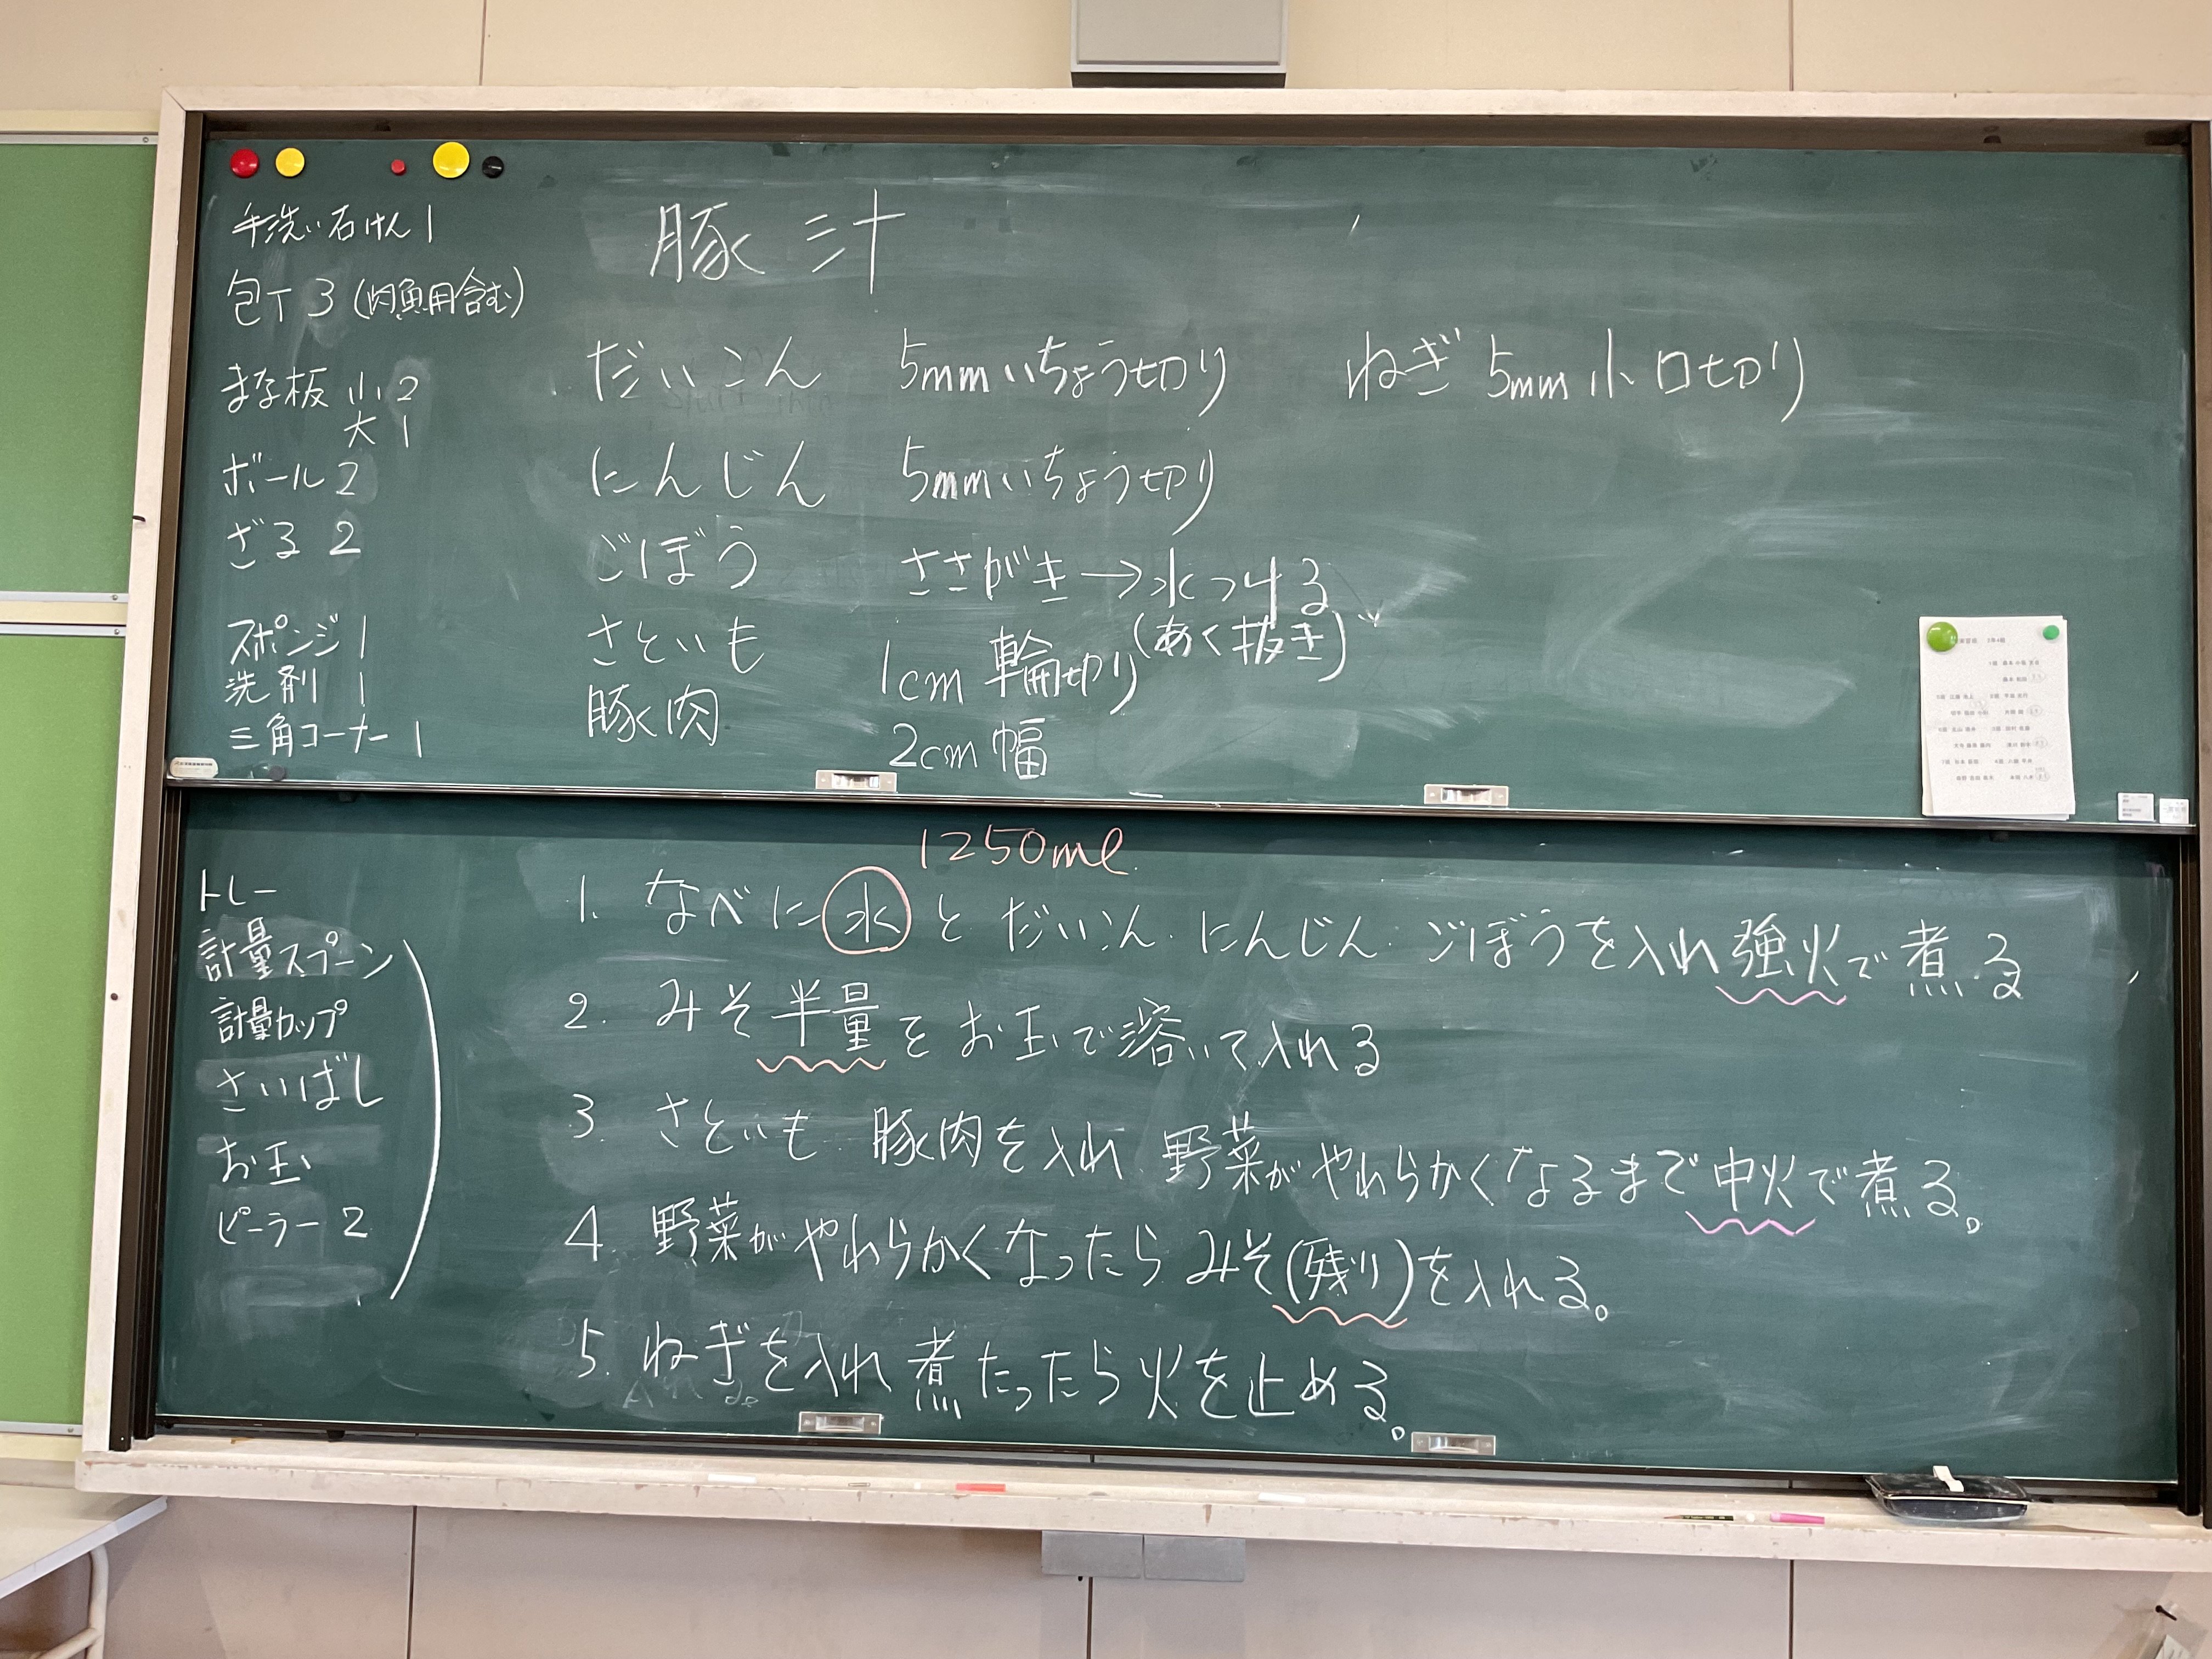 手洗い石けん 1
包丁 3 (肉魚用含む)
まな板 小 2
大 1
ボール 2
ざる 2
スポンジ 1
洗剤 1
三角コーナー 1
豚汁
だいこん 5mm いちょう切り
にんじん 5mm いちょう切り
ごぼう ささがき→水つける
(あく抜き)
さといも 1cm 輪切り
豚肉 2cm 幅
ねぎ 5mm 小口切り
トレー
計量スプーン
計量カップ
さいばし
お玉
ピーラー 2
1250ml
1. なべに水とだいこん.にんじん.ごぼうを入れ強火で煮る
2. みそ半量をお玉で溶いて入れる
3. さといも.豚肉を入れ 野菜がやわらかくなるまで中火で煮る。
4. 野菜がやわらかくなったらみそ(残り)を入れる。
5. ねぎを入れ煮たったら火を止める。